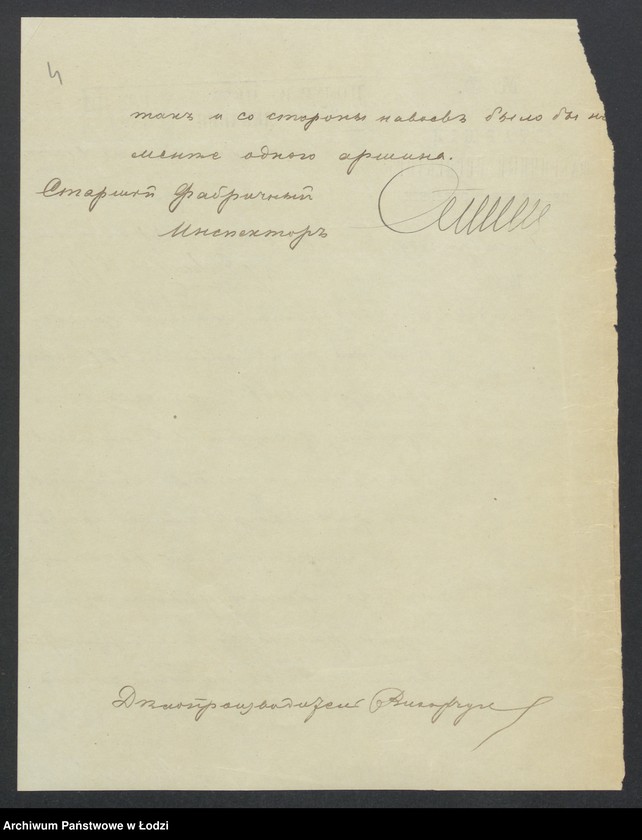 4
такъ и со стороны навоевъ было бы не
менѣе одного аршина.
Старшій Фабричный
Инспекторъ
Дѣлопроизводитель
Archiwum Państwowe w Łodzi